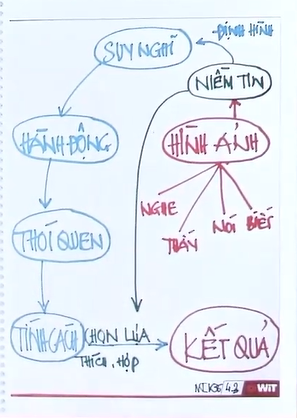 SUY NGHĨ
ĐỊNH HÌNH
NIỀM TIN
HÀNH ĐỘNG
HÌNH ẢNH
NGHE
THẤY
NÓI
BIẾT
THÓI QUEN
TÍNH CÁCH
CHỌN LỰA
THÍCH HỢP
KẾT QUẢ
WIT